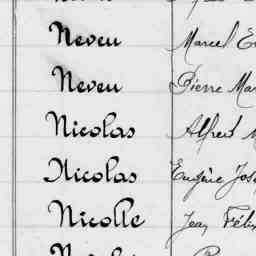 Neveu Marcel
Neveu Pierre
Nicolas Alfred
Nicolas Eugène
Nicolle Jean Félix